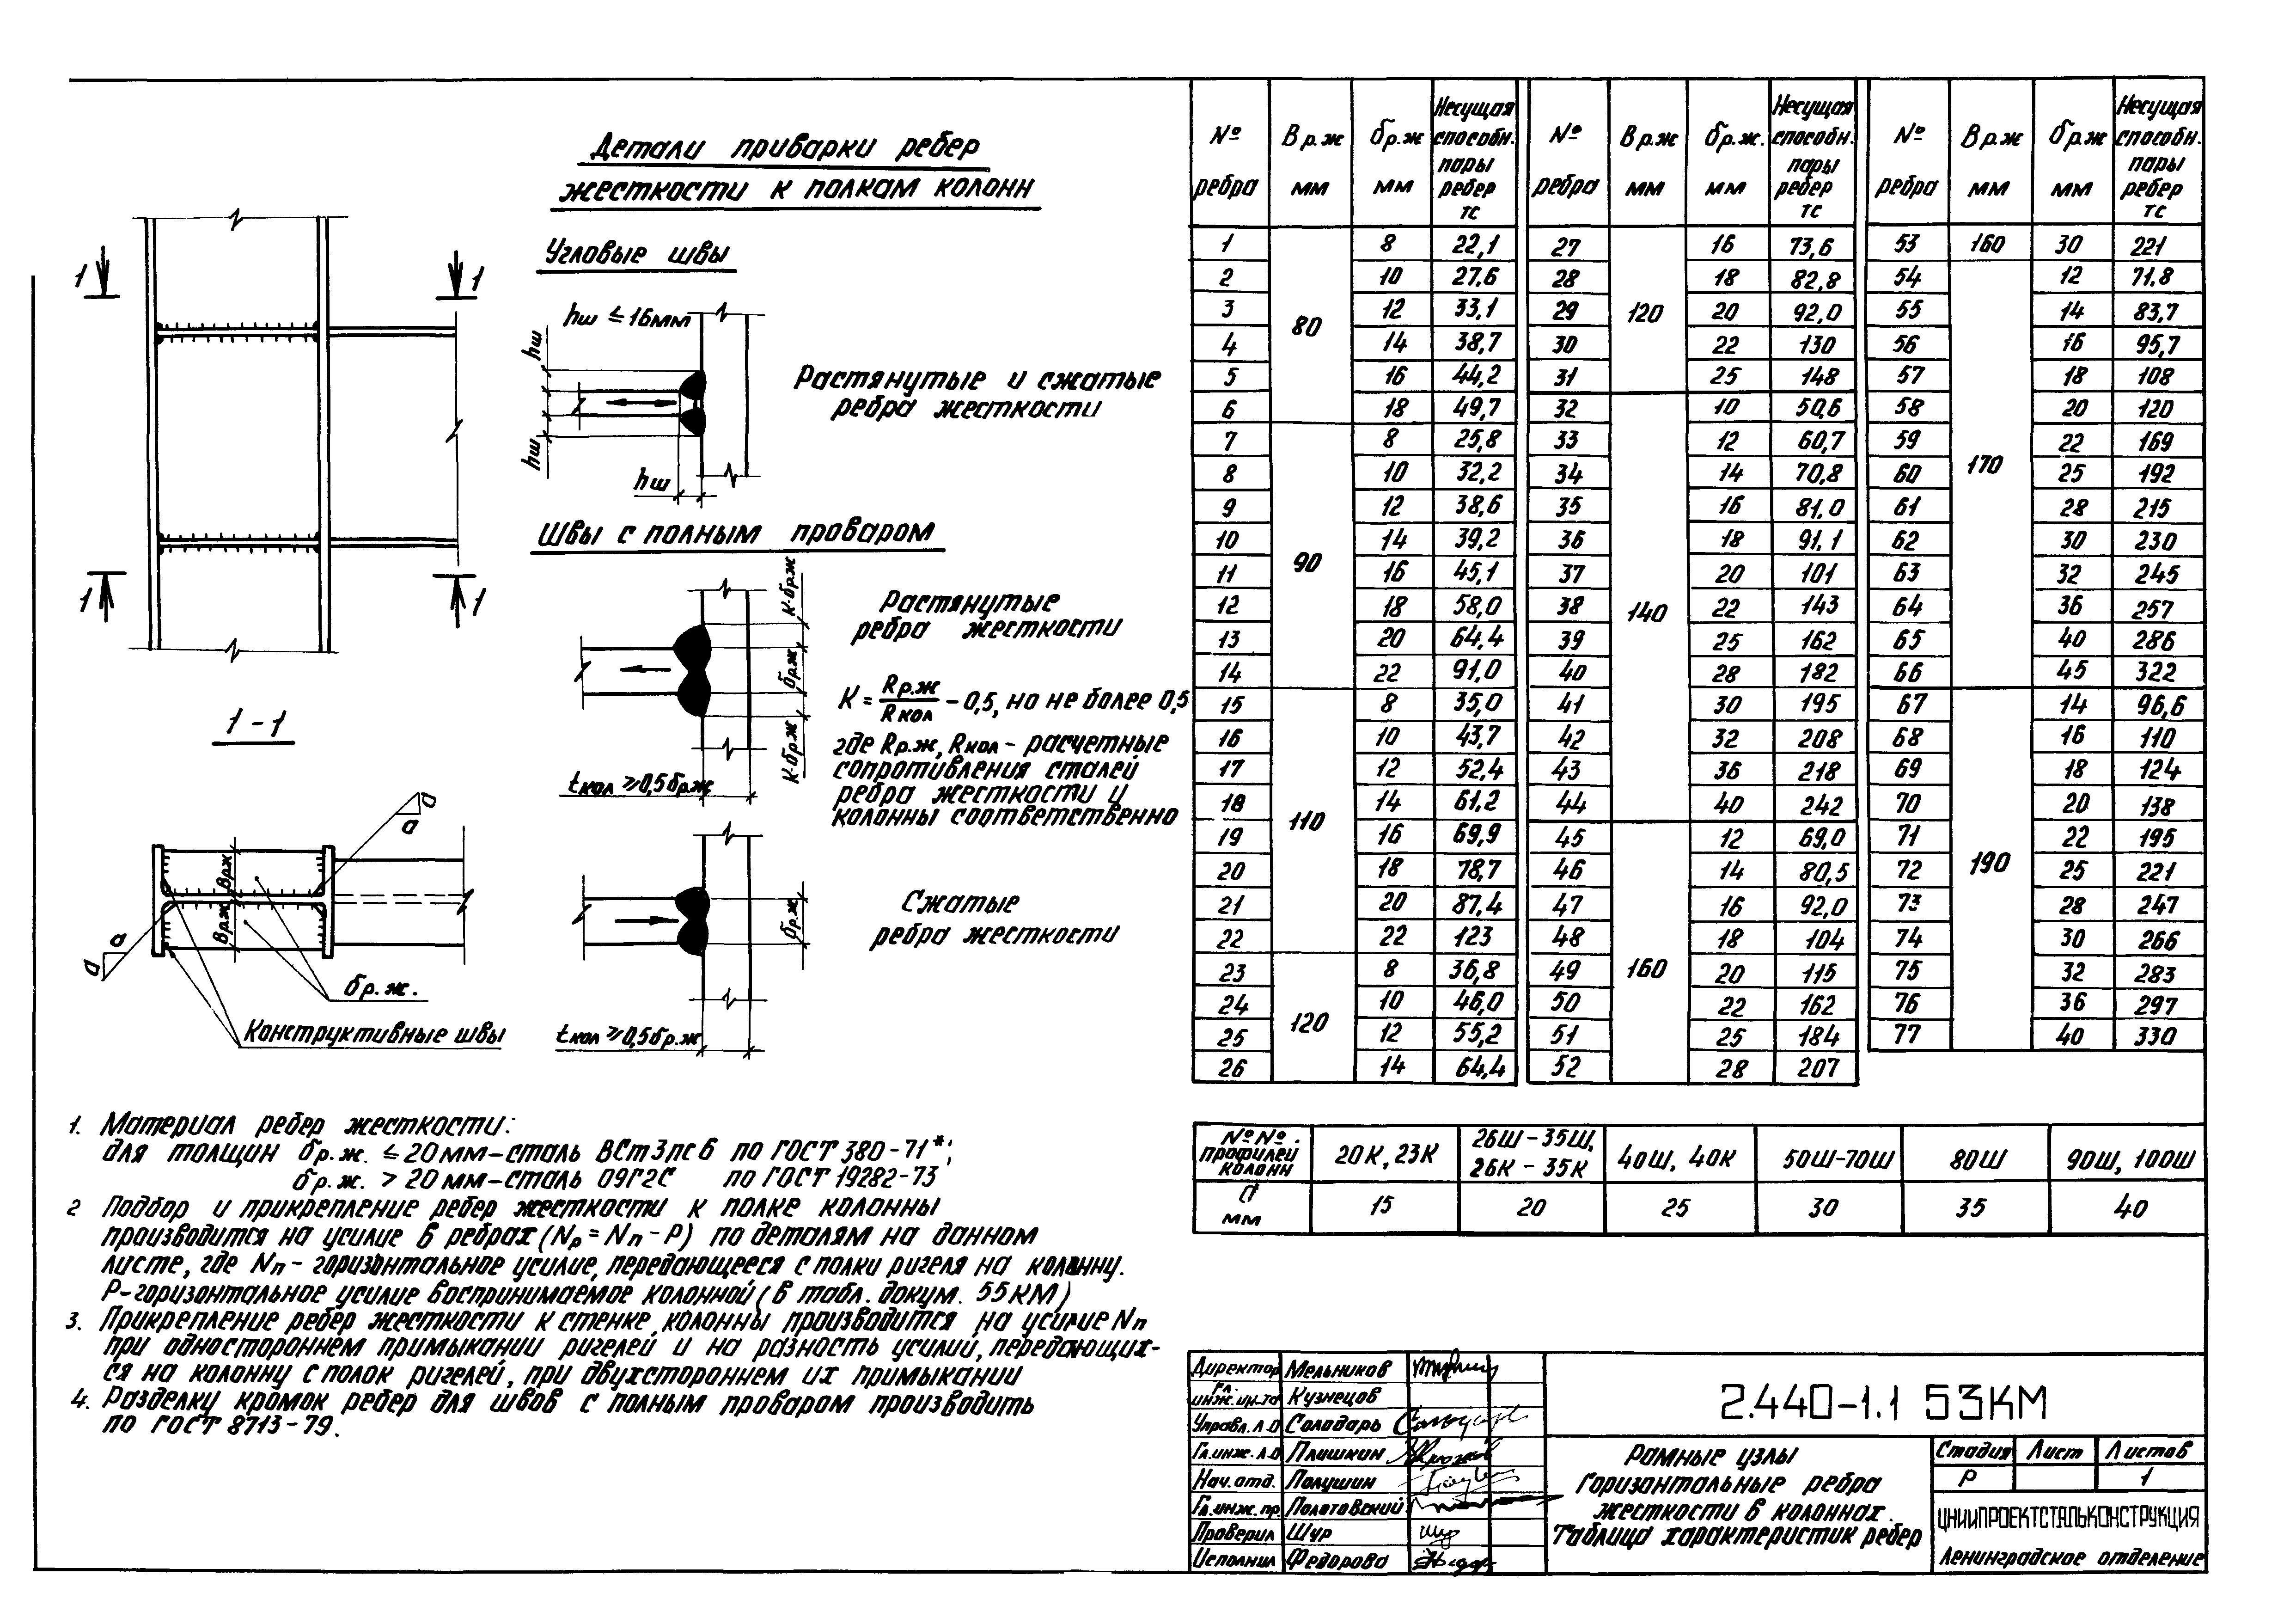 Детали приварки ребер
жесткости к полкам колонн
Угловые швы
hш ≤ 16мм
hш
hш
hш
Растянутые и сжатые
ребра жесткости
Швы с полным проваром
К·δр.ж
δр.ж
К·δр.ж
tкол ≥ 0,5δр.ж
Растянутые
ребра жесткости
К = Rр.ж / Rкол − 0,5, но не более 0,5
где Rр.ж, Rкол – расчетные
сопротивления сталей
ребра жесткости и
колонны соответственно
δр.ж
tкол ≥ 0,5δр.ж
Сжатые
ребра жесткости
1 1
1 1
1 - 1
а
а
Вр.ж
Вр.ж
а
а
δр.ж.
Конструктивные швы
1. Материал ребер жесткости:
для толщин δр.ж. ≤ 20мм–сталь ВСт3пс6 по ГОСТ 380-71*;
δр.ж. > 20мм–сталь 09Г2С по ГОСТ 19282-73
2 Подбор и прикрепление ребер жесткости к полке колонны
производится на усилие в ребрах (Nр = Nп – Р) по деталям на данном
листе, где Nп – горизонтальное усилие, передающееся с полки ригеля на колонну.
Р–горизонтальное усилие воспринимаемое колонной (в табл. докум. 55КМ)
3. Прикрепление ребер жесткости к стенке колонны производится на усилие Nп
при одностороннем примыкании ригелей и на разность усилий, передающих-
ся на колонну с полок ригелей, при двухстороннем их примыкании
4. Разделку кромок ребер для швов с полным проваром производить
по ГОСТ 8713-79.
№ ребра Вр.ж мм δр.ж мм Несущая способн. пары ребер тс
1 80 8 22,1
2 10 27,6
3 12 33,1
4 14 38,7
5 16 44,2
6 18 49,7
7 90 8 25,8
8 10 32,2
9 12 38,6
10 14 39,2
11 16 45,1
12 18 58,0
13 20 64,4
14 22 91,0
15 110 8 35,0
16 10 43,7
17 12 52,4
18 14 61,2
19 16 69,9
20 18 78,7
21 20 87,4
22 22 123
23 120 8 36,8
24 10 46,0
25 12 55,2
26 14 64,4
№ ребра Вр.ж мм δр.ж. мм Несущая способн. пары ребер тс
27 120 16 73,6
28 18 82,8
29 20 92,0
30 22 130
31 25 148
32 140 10 50,6
33 12 60,7
34 14 70,8
35 16 81,0
36 18 91,1
37 20 101
38 22 143
39 25 162
40 28 182
41 30 195
42 32 208
43 36 218
44 40 242
45 160 12 69,0
46 14 80,5
47 16 92,0
48 18 104
49 20 115
50 22 162
51 25 184
52 28 207
№ ребра Вр.ж мм δр.ж мм Несущая способн. пары ребер тс
53 160 30 221
54 170 12 71,8
55 14 83,7
56 16 95,7
57 18 108
58 20 120
59 22 169
60 25 192
61 28 215
62 30 230
63 32 245
64 36 257
65 40 286
66 45 322
67 190 14 96,6
68 16 110
69 18 124
70 20 138
71 22 195
72 25 221
73 28 247
74 30 266
75 32 283
76 36 297
77 40 330
№№ профилей колонн 20К, 23К 26Ш-35Ш, 26К-35К 40Ш, 40К 50Ш-70Ш 80Ш 90Ш, 100Ш
а мм 15 20 25 30 35 40
Директор Мельников
Гл. инж. ин-та Кузнецов
Управл. Л.О Солодарь
Гл. инж. Л.О Плишкин
Нач. отд. Полушин
Гл. инж. пр. Полотовский
Проверил Шур
Исполнил Федорова
2.440-1.1 53КМ
Рамные узлы
Горизонтальные ребра
жесткости в колоннах.
Таблица характеристик ребер
Стадия Лист Листов
Р 1
ЦНИИПРОЕКТСТАЛЬКОНСТРУКЦИЯ
Ленинградское отделение